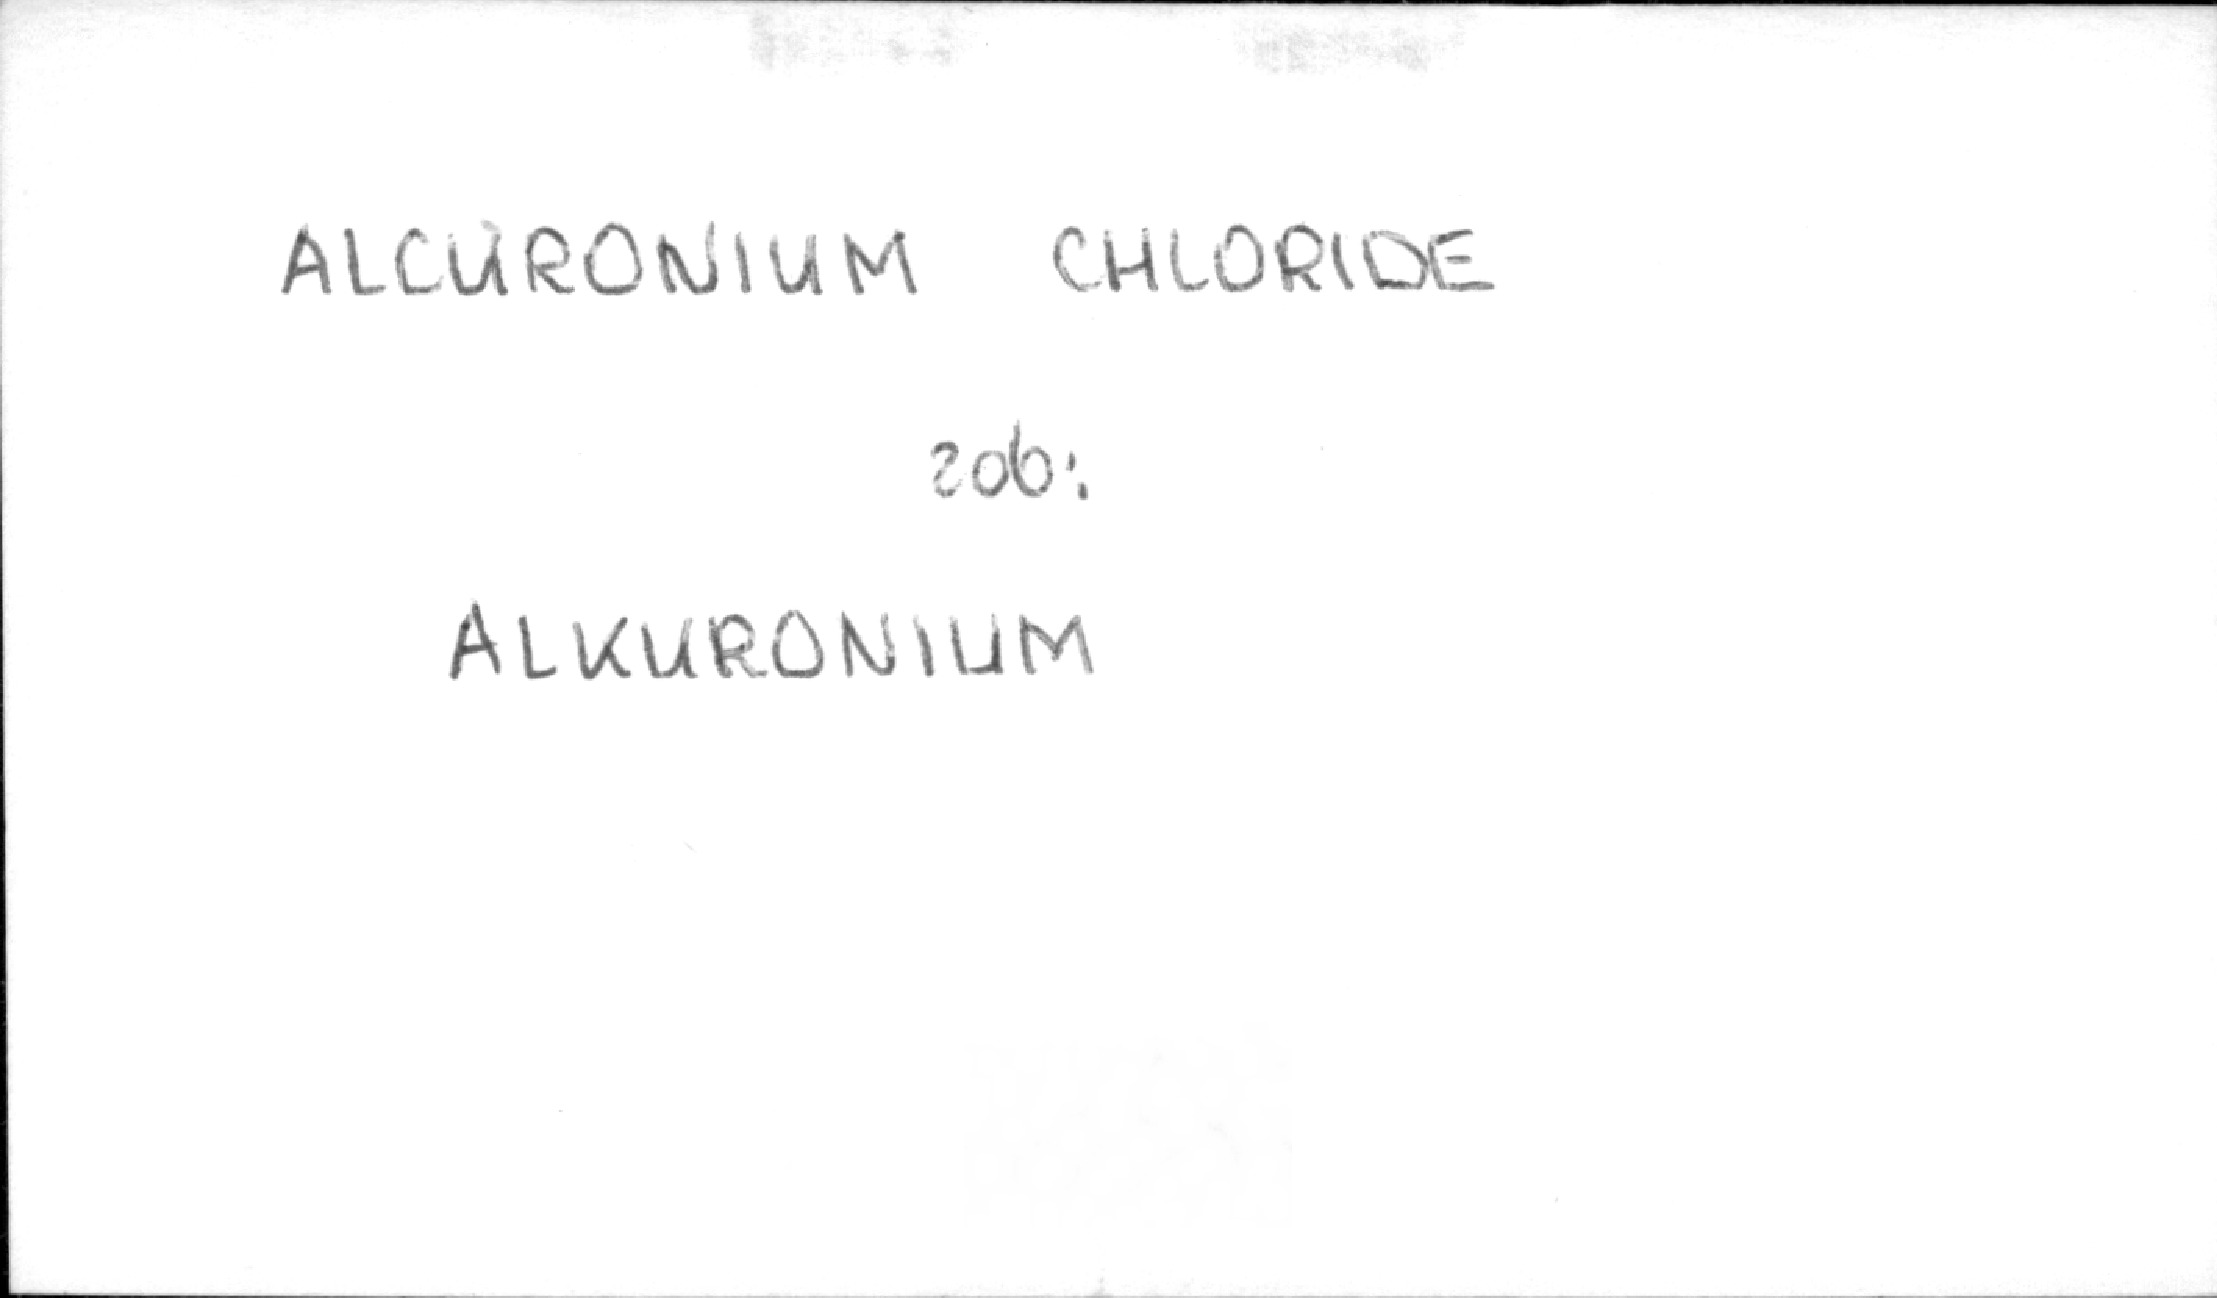 ALCURONIUM CHLORIDE
zob:
ALKURONIUM